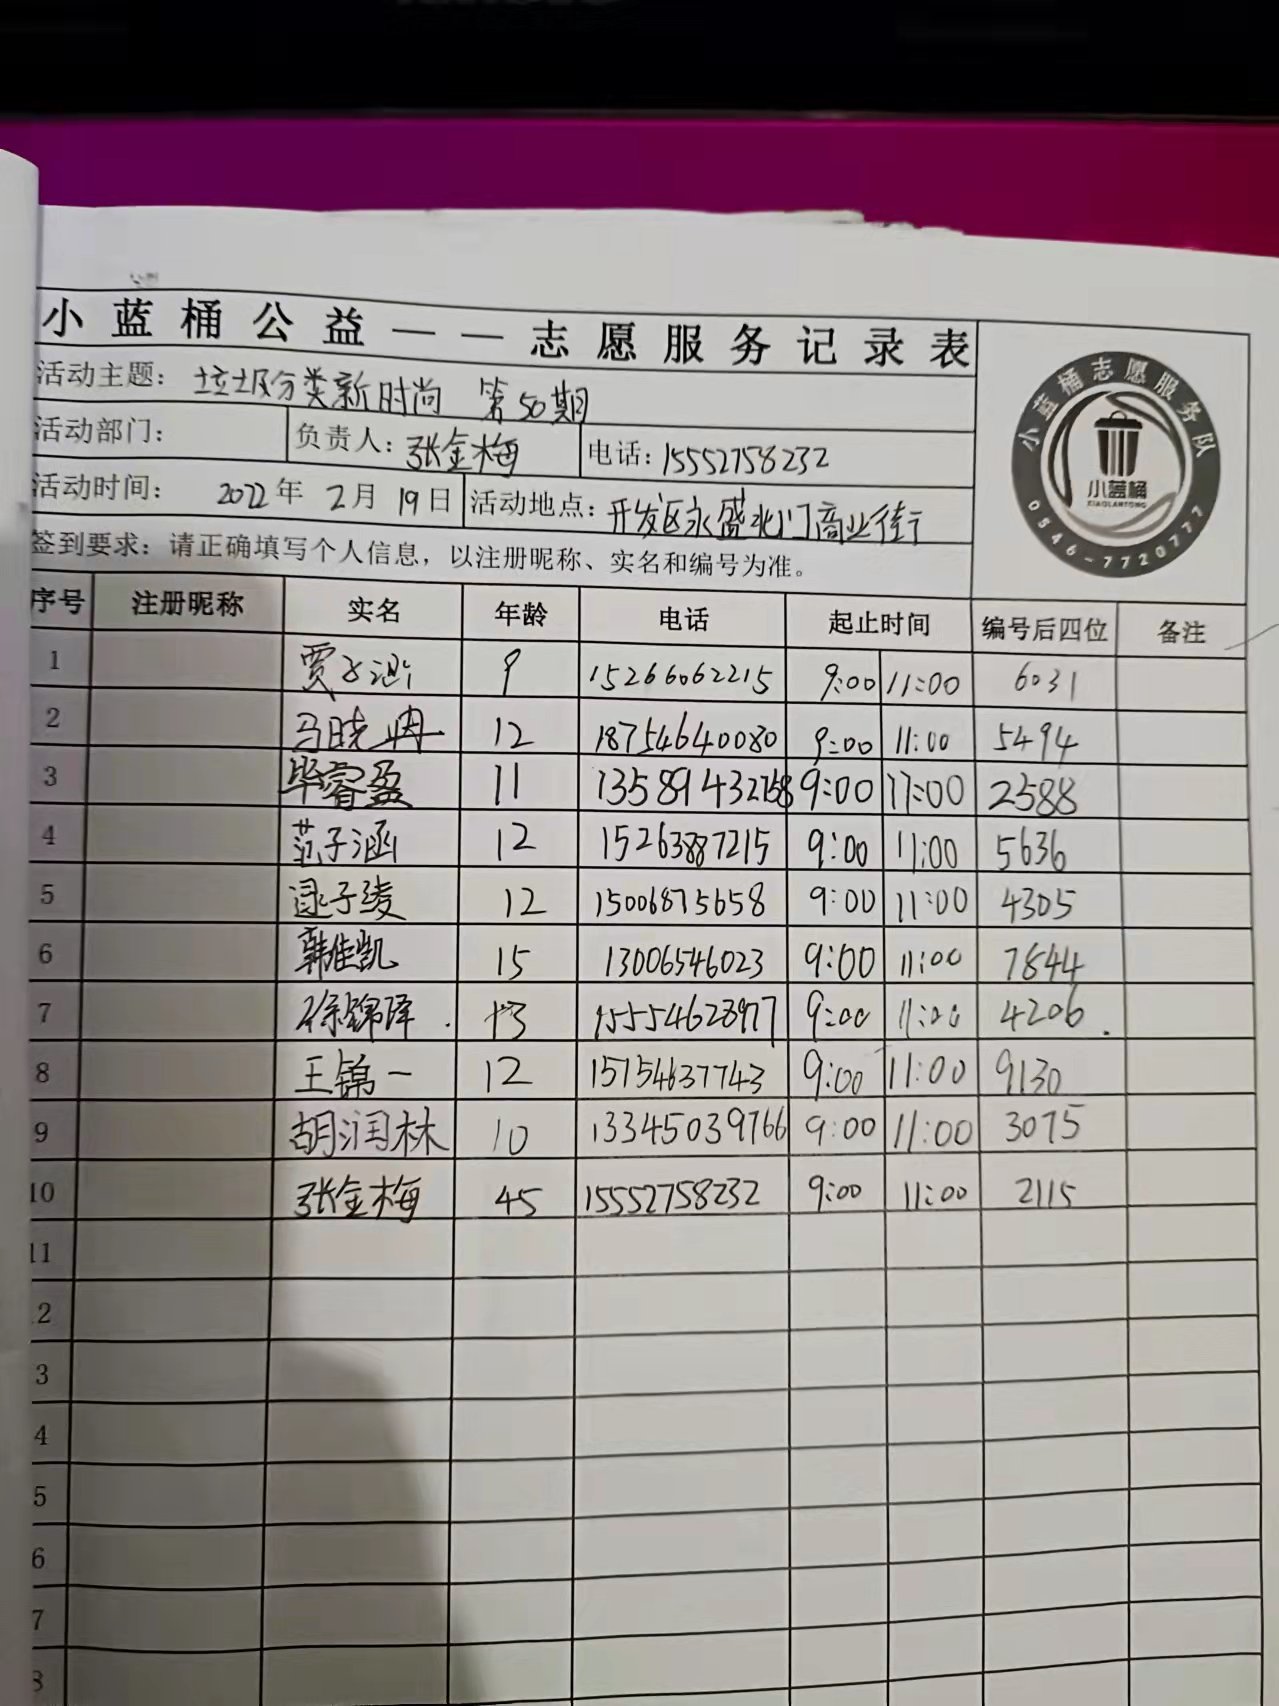 小蓝桶公益——志愿服务记录表
活动主题： 垃圾分类新时尚 第50期
活动部门： 负责人：张金梅 电话：15552758232
活动时间： 2022年 2月 19日 活动地点：开发区永盛北门商业街
签到要求：请正确填写个人信息，以注册昵称、实名和编号为准。
小蓝桶志愿服务队
小蓝桶
XIAOLANTONG
0546-7720777
序号 注册昵称 实名 年龄 电话 起止时间 编号后四位 备注
1 贾子涵 9 15266062215 9:00 11:00 6031
2 马晓冉 12 18754640080 9:00 11:00 5494
3 毕睿盈 11 9:00 11:00 2588
4 范子涵 12 15263887215 9:00 11:00 5636
5 逯子凌 12 15006875658 9:00 11:00 4305
6 韩佳凯 15 13006546023 9:00 11:00 7844
7 徐锦泽 13 155554628977 9:00 11:00 4206
8 王锦一 12 15754637743 9:00 11:00 9130
9 胡润林 10 13345039766 9:00 11:00 3075
10 张金梅 45 15552758232 9:00 11:00 2115
11
2
3
4
5
6
7
8